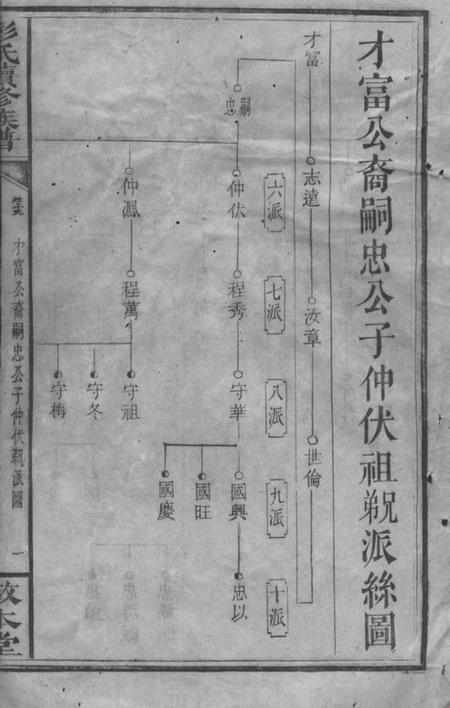 才富公裔嗣忠公子仲伏祖㒭派絲圖
才富
志遠
汝章
世倫
六派
七派
八派
九派
十派
嗣忠
仲伏
程秀
守華
國興
忠以
國旺
國慶
仲鳳
程萬
守祖
守冬
守梅
彭氏續修族譜
才富公裔嗣忠公子仲伏㒭派圖
一
敦本堂